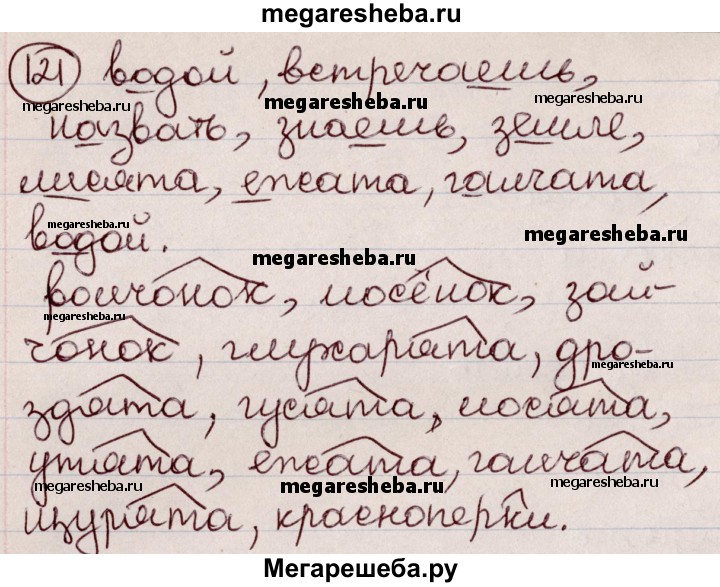 megaresheba.ru
121 водой, встречаешь,
megaresheba.ru megaresheba.ru megaresheba.ru
назвать, знаешь, земле,
лисята, ежата, галчата,
megaresheba.ru megaresheba.ru
водой.
megaresheba.ru
волчонок, лосёнок, зай-
megaresheba.ru
чонок, глухарята, дро-
megaresheba.ru
здята, гусята, лосята,
утята, ежата, галчата,
megaresheba.ru megaresheba.ru megaresheba.ru
щурята, красноперки.
Мегарешеба.ру